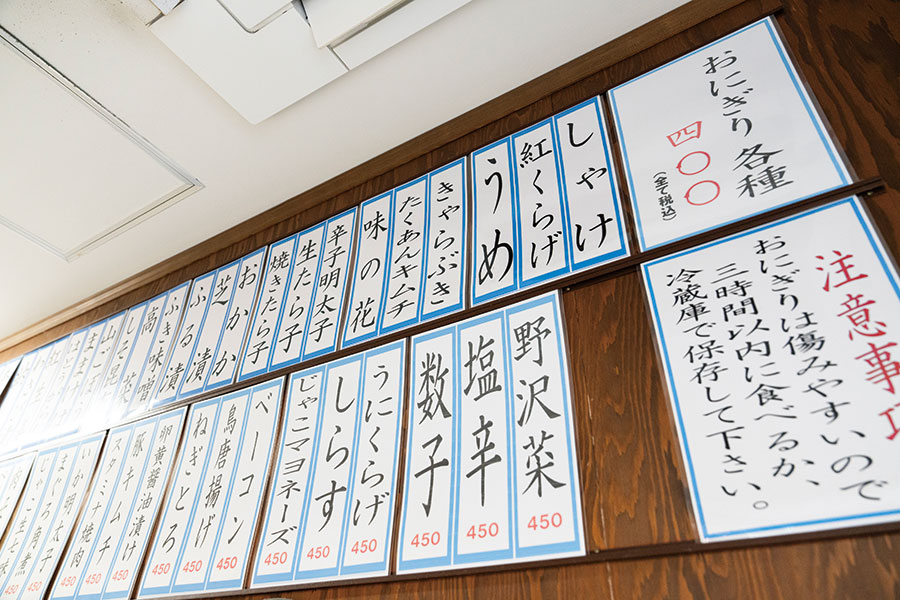 おにぎり各種
四〇〇
(全て税込)
注意事項
おにぎりは傷みやすいので
三時間以内に食べるか、
冷蔵庫で保存して下さい。
しゃけ
紅くらげ
うめ
きゃらぶき
たくあんキムチ
味の花
辛子明太子
生たら子
焼きたら子
おかか
芝漬
ふる漬
ふき味噌
高菜
野沢菜
450
塩辛
450
数子
450
うにくらげ
450
しらす
450
じゃこマヨネーズ
450
ベーコン
450
鳥唐揚げ
450
ねぎとろ
450
卵黄醤油漬け
450
豚キムチ
450
スタミナ焼肉
450
いか明太子
450
まぐろ角煮
450